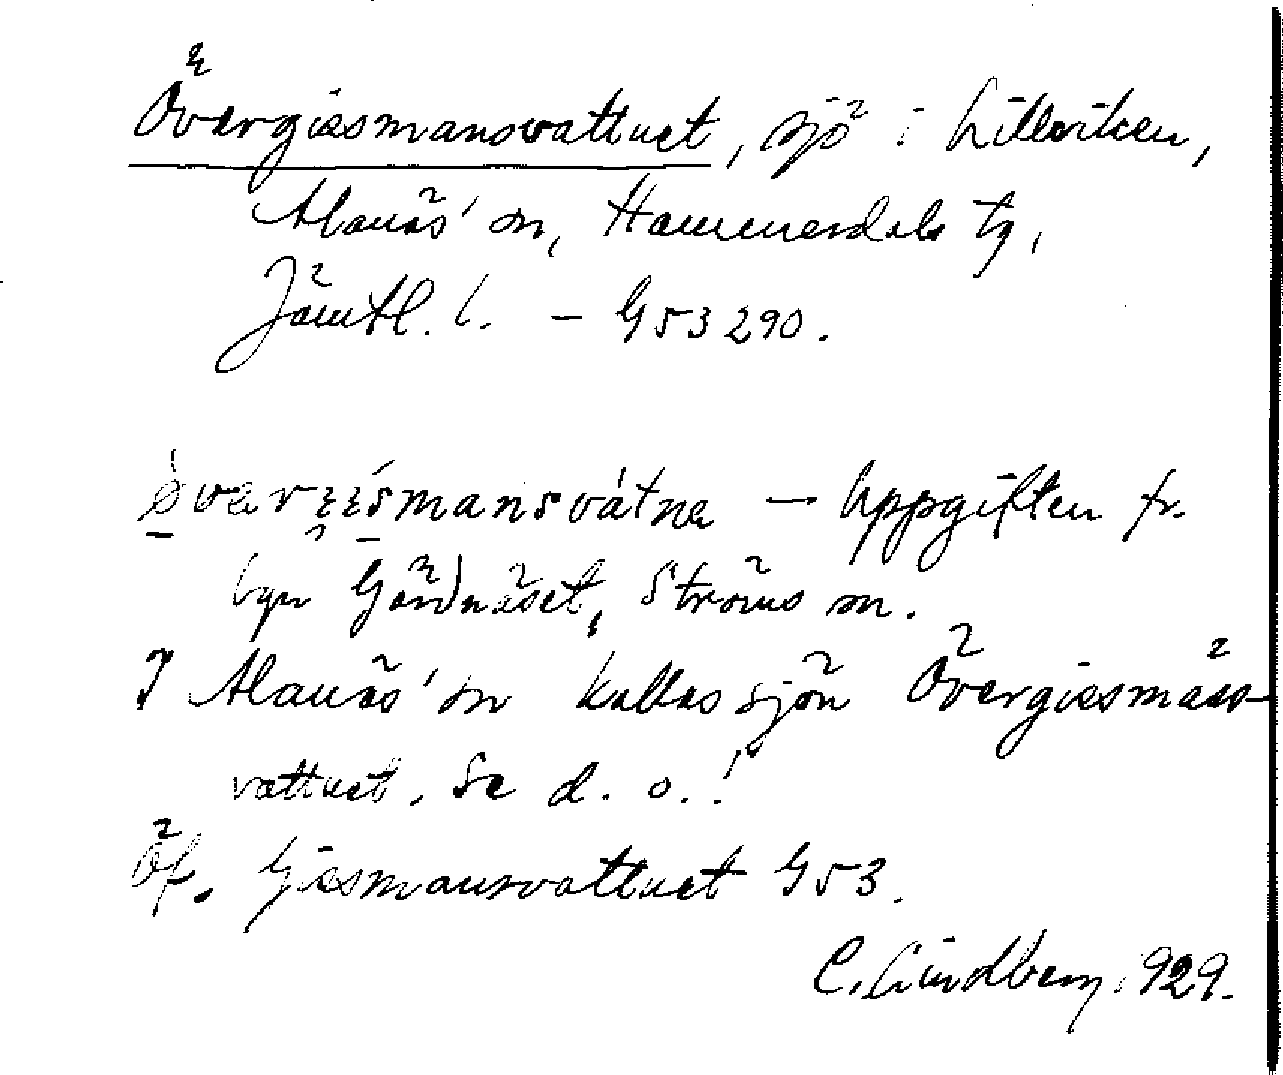 Övergissmansvattnet, sjö i Lillviken,
Alanäs' sn, Hammerdals tg,
Jämtl. l. – G53290.
övargismansvátne – Uppgiften fr.
byn Gärdnäset, Ströms sn.
I Alanäs' sn kallas sjön Övergissmäss-
vattnet. Se d. o.!
Öf. Gissmansvattnet G53.
C. Lindberg 1929.